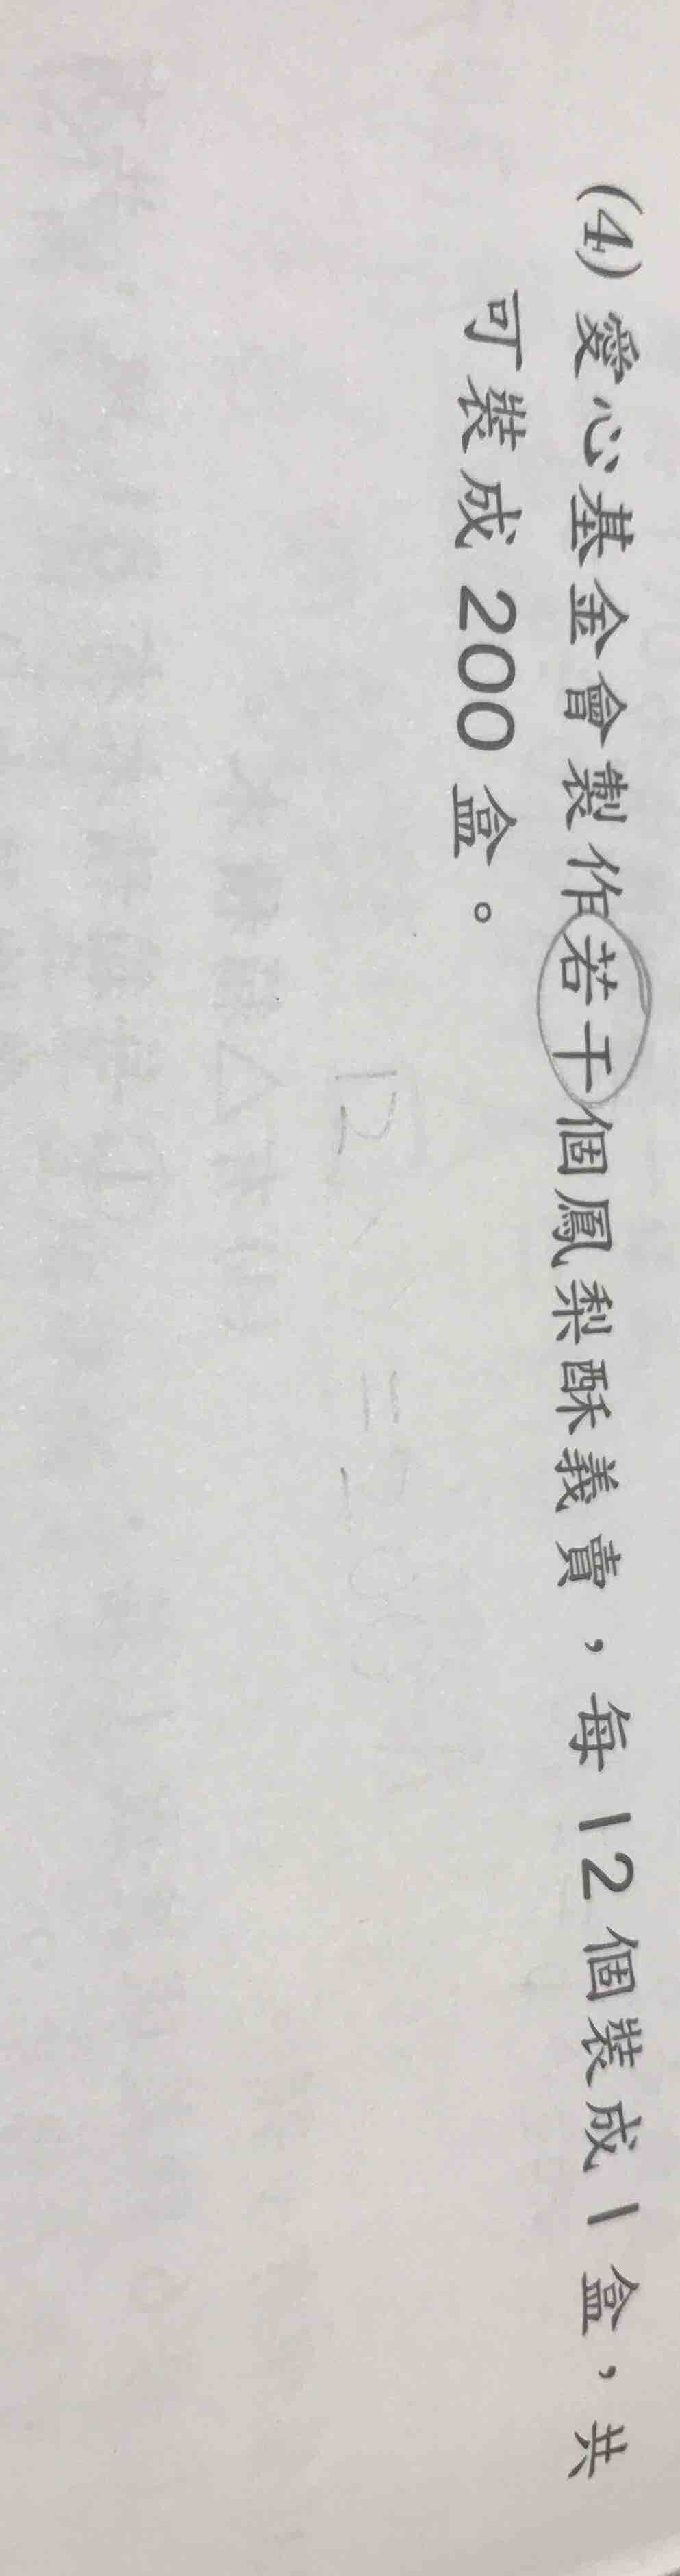 (4) 愛心基金會製作若干個鳳梨酥義賣，每12個裝成1盒，共
可裝成200盒。